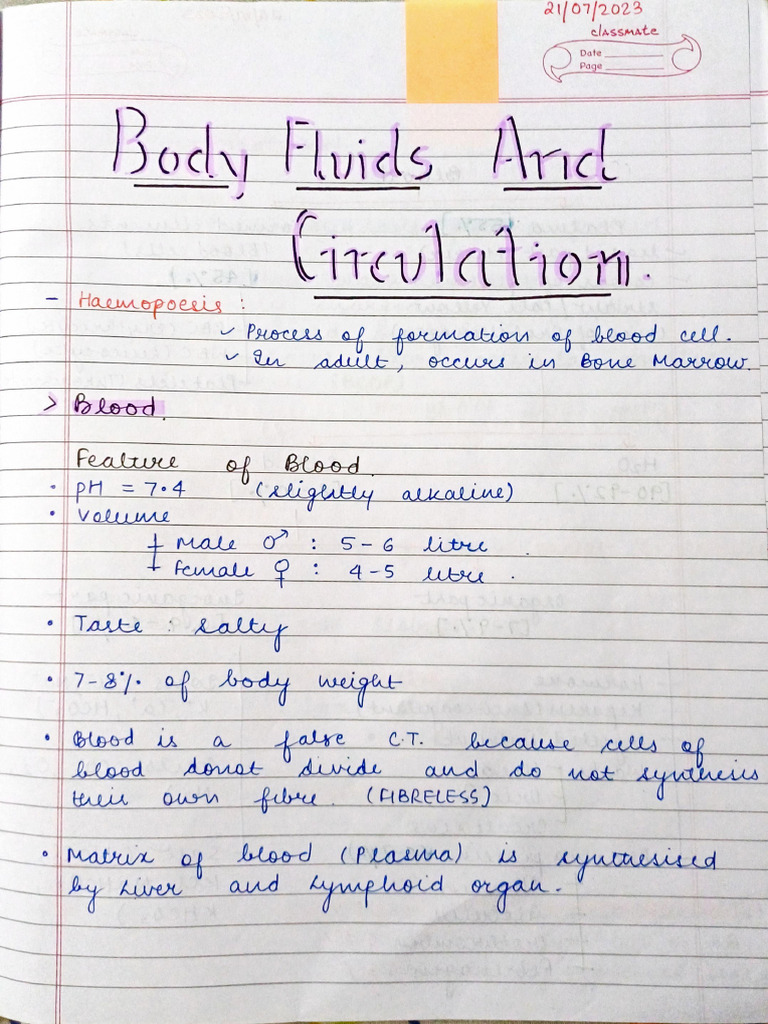 21/07/2023
classmate
Date
Page
Body Fluids And
Circulation.
- Haemopoesis :
✓ Process of formation of blood cell.
✓ In adult, occurs in Bone Marrow.
> Blood.
Fealture of Blood.
• pH = 7.4 (slightly alkaline)
• Volume
Male ♂ : 5-6 litre .
Female ♀ : 4-5 litre .
• Taste : salty
• 7-8% of body weight
• Blood is a false C.T. because cells of
blood donot divide and do not synthesis
their own fibre. (FIBRELESS)
• Matrix of blood (Plasma) is synthesised
by Liver and Lymphoid organ.